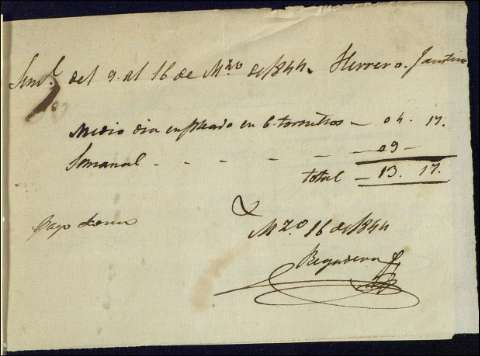 del 9. al 16 de Mzo de 1844. Herrero.
Medio dia empleado en 6 tornillos — 04. 17.
Semanal — 09 —
total — 13. 17.
Mzo 16 de 1844